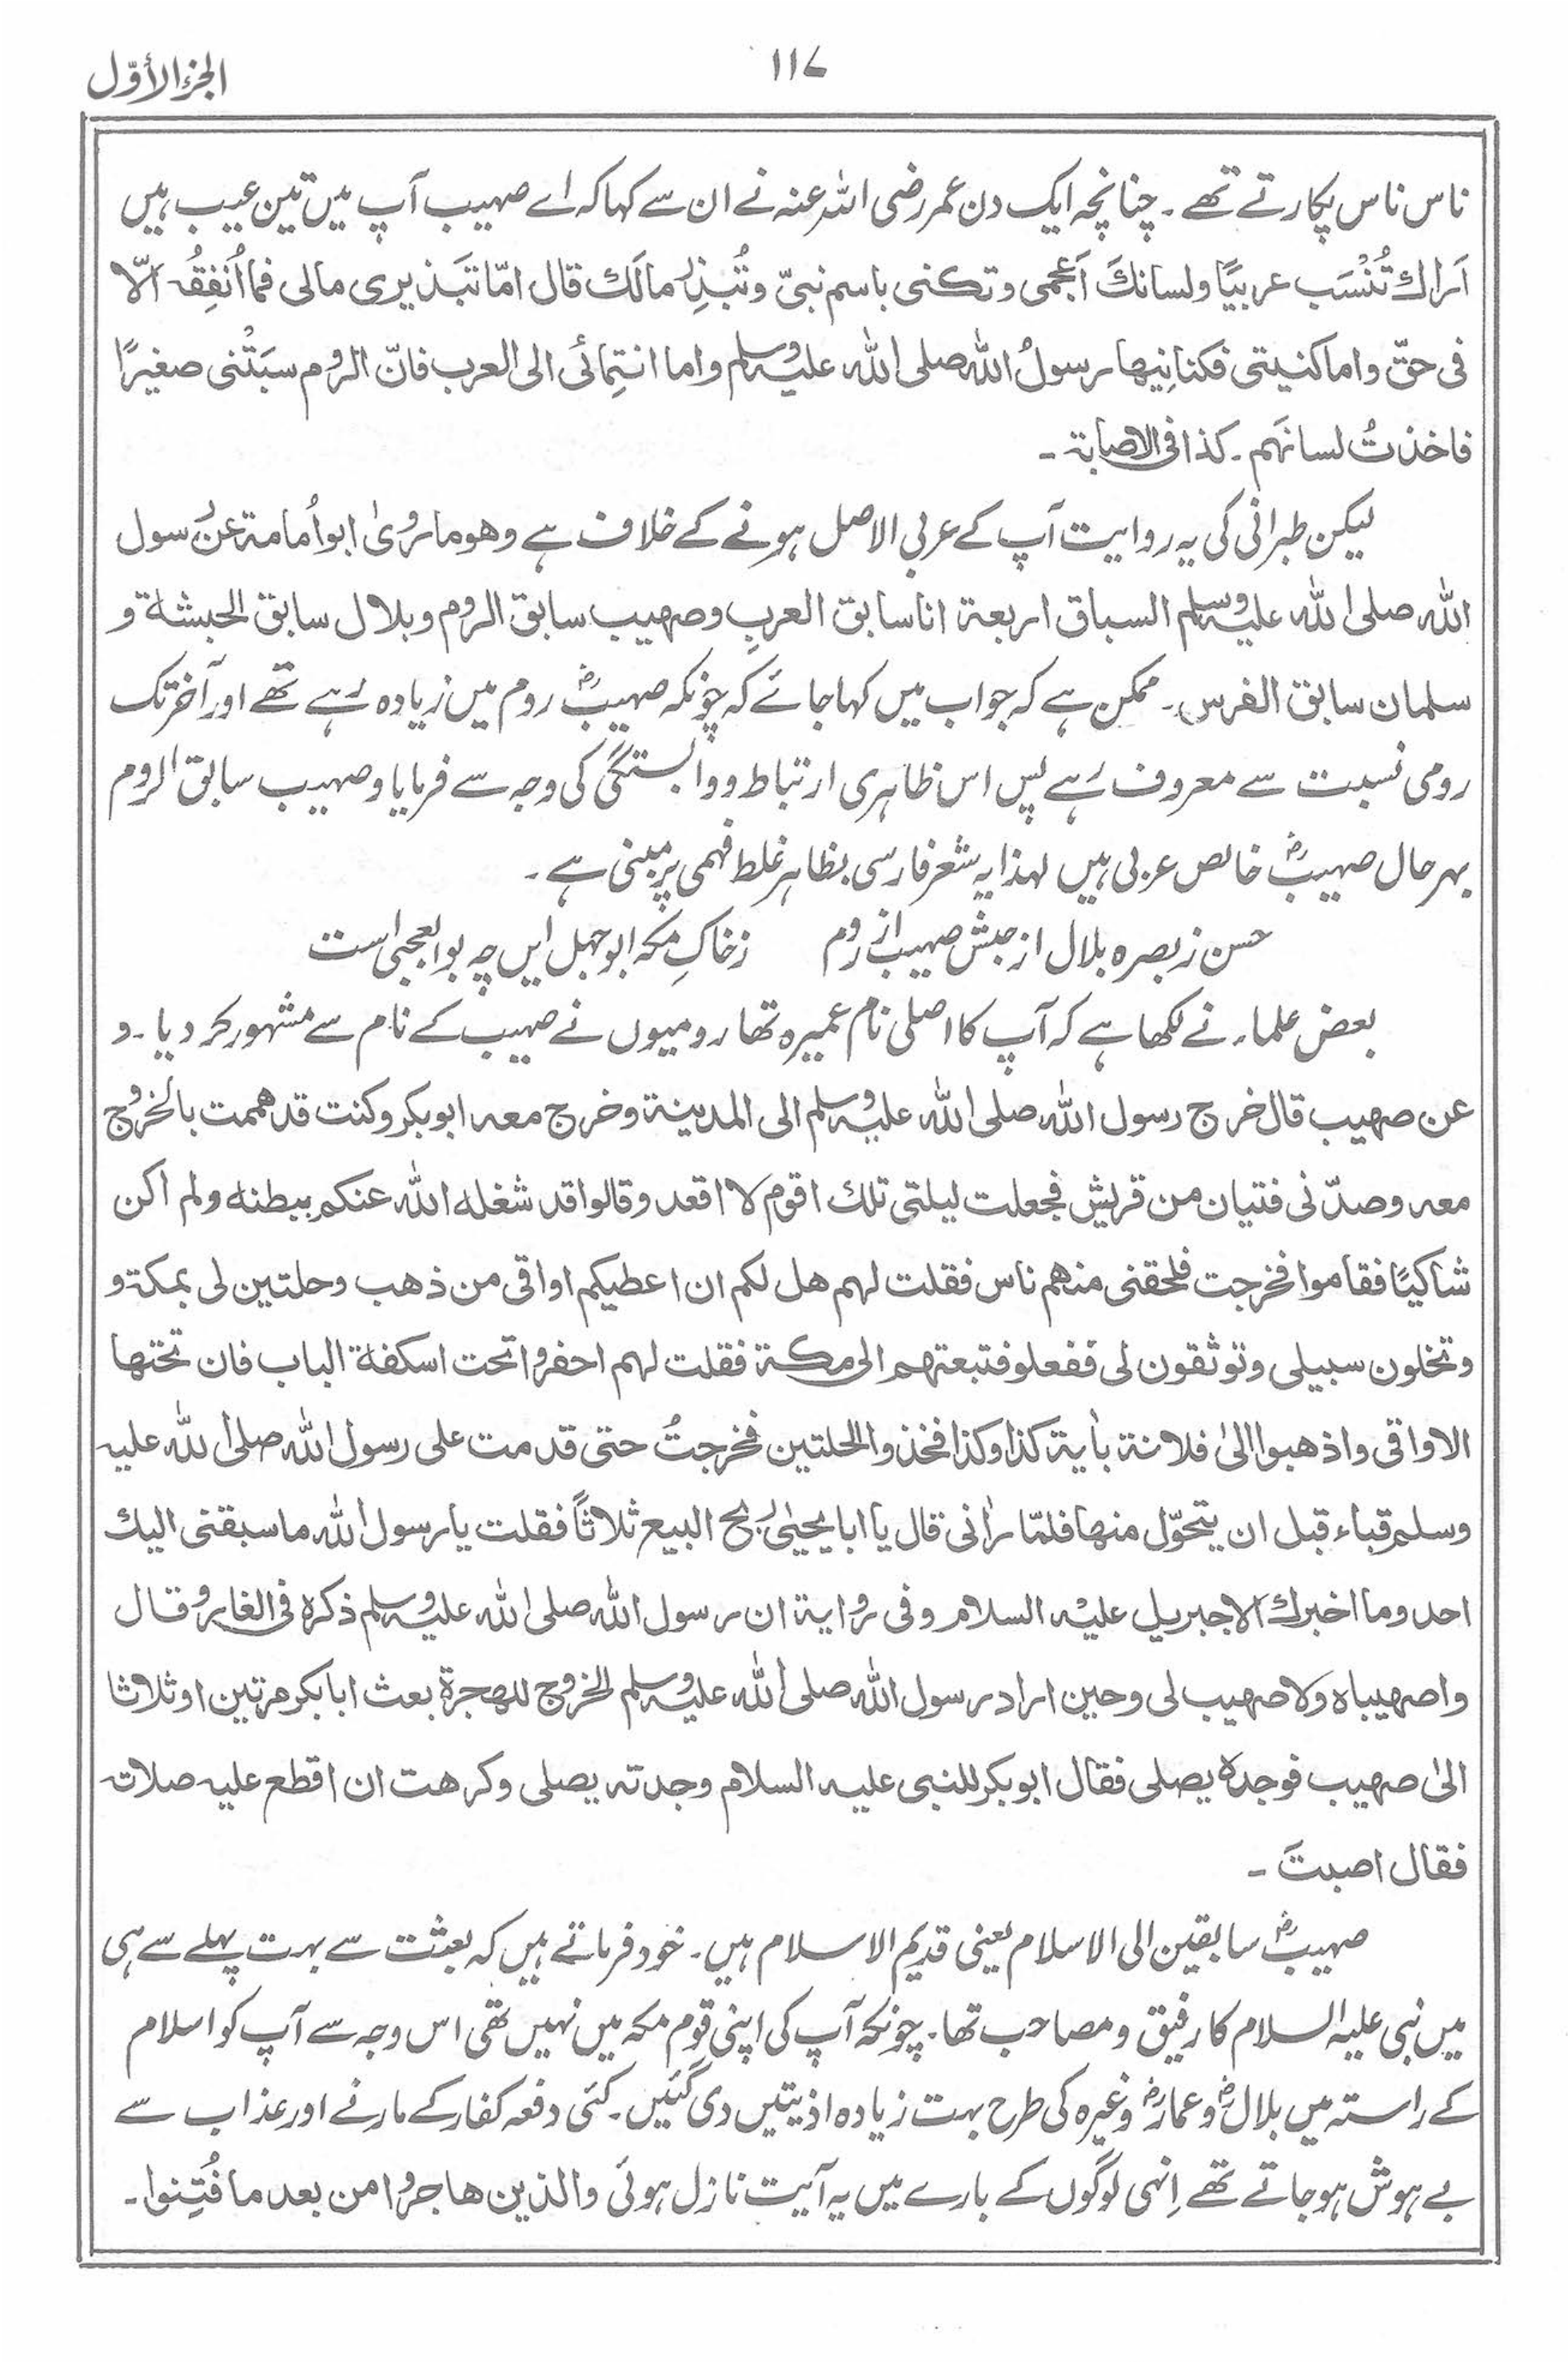 ۱۱۷
الجزء الأوّل
ناس ناس پکارتے تھے ۔ چنانچہ ایک دن عمر رضی اللہ عنہ نے ان سے کہا کہ اے صہیب آپ میں تین عیب ہیں
اَراك تُنْسَب عربيًّا ولسانكَ اَعجمی و تکنی باسم نبیّ وتُبَذِّرُ مالَك قال امّا تَبذیری مالی فما اُنفِقُه اَلّا
فی حقّ واما کنیتی فکنانِیها رسولُ الله صلی الله علیه وسلم واما انتِمائی الی العرب فانّ الروم سبَتْنی صغیرًا
فاخذتُ لسانَهم ۔ کذا فی الاصابة ۔
لیکن طبرانی کی یہ روایت آپ کے عربی الاصل ہونے کے خلاف ہے وهو ما رویٰ ابو اُمامة عن رسول
الله صلی الله علیه وسلم السباق اربعة انا سابق العربِ وصهیب سابق الروم وبلال سابق الحبشة و
سلمان سابق الفرس ۔ ممکن ہے کہ جواب میں کہا جائے کہ چونکہ صہیبؓ روم میں زیادہ رہے تھے اور آخر تک
رومی نسبت سے معروف رہے پس اس ظاہری ارتباط و وابستگی کی وجہ سے فرمایا وصہیب سابق الروم
بہر حال صہیبؓ خالص عربی ہیں لہذا یہ شعر فارسی بظاہر غلط فہمی پر مبنی ہے ۔
حسن ز بصرہ بلال از حبش صہیب از روم زخاکِ مکہ ابو جہل ایں چہ بو العجبی است
بعض علماء نے لکھا ہے کہ آپ کا اصلی نام عمیرہ تھا رومیوں نے صہیب کے نام سے مشہور کر دیا ۔ و
عن صهیب قال خرج رسول الله صلی الله علیه وسلم الی المدینة وخرج معه ابوبکر وکنت قد هممت بالخروج
معه وصدّنی فتیان من قریش فجعلت لیلتی تلك اقوم لا اقعد وقالوا قد شغله الله عنکم ببطنه ولم اکن
شاکیًا فقاموا فخرجت فلحقنی منهم ناس فقلت لهم هل لکم ان اعطیکم اواقی من ذهب وحلتین لی بمکة و
وتخلون سبیلی وتوثقون لی ففعلو فتبعتهم الی مکة فقلت لهم احفروا تحت اسکفة الباب فان تحتها
الاواقی واذهبوا الیٰ فلانة بأیة کذا وکذا فخذوا الحلتین فخرجتُ حتی قدمت علی رسول الله صلی الله علیه
وسلم قباء قبل ان یتحوّل منها فلمّا رأنی قال یا ابا یحییٰ رَبح البیع ثلاثًا فقلت یا رسول الله ما سبقنی الیك
احد وما اخبرك الا جبریل علیه السلام وفی روایة ان رسول الله صلی الله علیه وسلم ذکره فی الغار وقال
واصهیباه ولا صهیب لی وحین اراد رسول الله صلی الله علیه وسلم الخروج للهجرة بعث ابا بکر مرتین او ثلاثا
الیٰ صهیب فوجده یصلی فقال ابوبکر للنبی علیه السلام وجدته یصلی وکرهت ان اقطع علیه صلاته
فقال اصبتَ ۔
صہیبؓ سابقین الی الاسلام یعنی قدیم الاسلام ہیں ۔ خود فرماتے ہیں کہ بعثت سے بہت پہلے سے ہی
میں نبی علیہ السلام کا رفیق و مصاحب تھا ۔ چونکہ آپ کی اپنی قوم مکہ میں نہیں تھی اس وجہ سے آپ کو اسلام
کے راستہ میں بلالؓ و عمارؓ وغیرہ کی طرح بہت زیادہ اذیتیں دی گئیں ۔ کئی دفعہ کفار کے مارنے اور عذاب سے
بے ہوش ہو جاتے تھے اِنہی لوگوں کے بارے میں یہ آیت نازل ہوئی والذین هاجروا من بعد ما فُتِنوا ۔